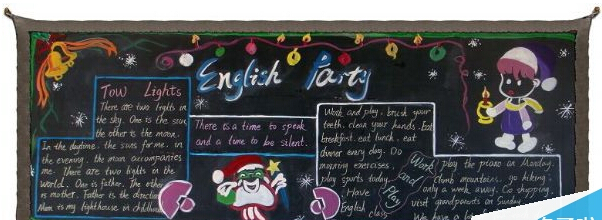 English Party
Tow Lights
There are two lights in
the sky. One is the sun
the other is the moon.
In the daytime. the suns for me. in
the evening. the moon accompanies
me. There are two lights in the
world. One is father. The other
is mother. Father is the direction
Mom is my lighthouse in childhood
There is a time to speak
and a time to be silent.
Work and play. brush your
teeth. clean your hands. eat
breakfast. eat lunch. eat
dinner every day. Do
morning exercises.
play sports today.
Have
English class
Work
and
Play
play the piano on Monday.
Climb mountains. go hiking.
only a week away. Go shopping.
visit grandparents on Sunday
We have a